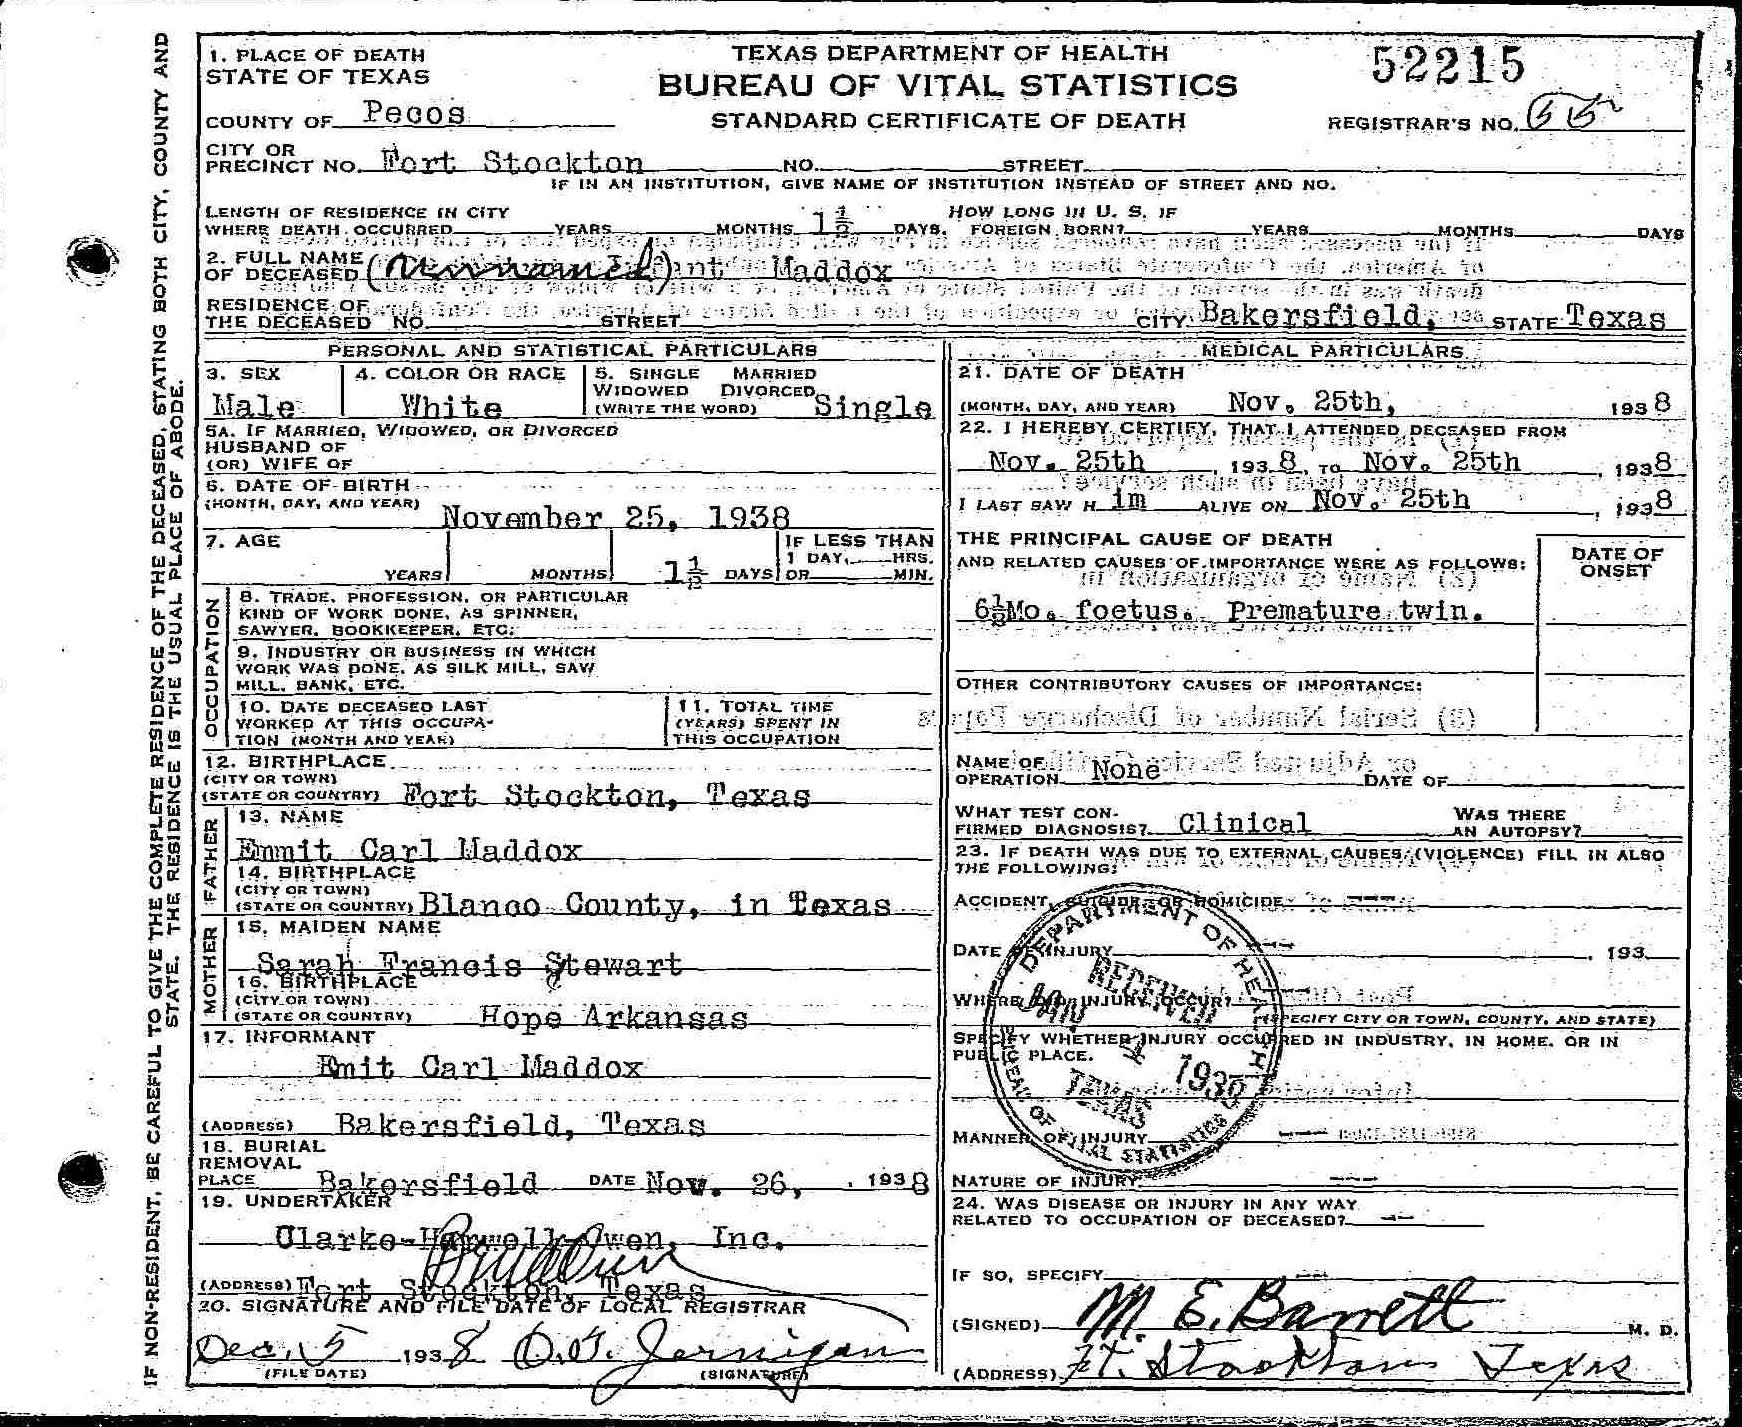 1. PLACE OF DEATH
STATE OF TEXAS
TEXAS DEPARTMENT OF HEALTH
BUREAU OF VITAL STATISTICS
STANDARD CERTIFICATE OF DEATH
52215
REGISTRAR'S NO. 55
COUNTY OF Pecos
CITY OR
PRECINCT NO. Fort Stockton NO. STREET
IF IN AN INSTITUTION, GIVE NAME OF INSTITUTION INSTEAD OF STREET AND NO.
LENGTH OF RESIDENCE IN CITY
WHERE DEATH OCCURRED YEARS MONTHS 1½ DAYS.
HOW LONG IN U. S. IF
FOREIGN BORN? YEARS MONTHS DAYS
2. FULL NAME
OF DECEASED (Unnamed) Maddox
RESIDENCE OF
THE DECEASED NO. STREET CITY Bakersfield, STATE Texas
PERSONAL AND STATISTICAL PARTICULARS
3. SEX
Male
4. COLOR OR RACE
White
5. SINGLE MARRIED
WIDOWED DIVORCED
(WRITE THE WORD) Single
5A. IF MARRIED, WIDOWED, OR DIVORCED
HUSBAND OF
(OR) WIFE OF
6. DATE OF BIRTH
(MONTH, DAY, AND YEAR) November 25, 1938
7. AGE
YEARS MONTHS 1½ DAYS
IF LESS THAN
1 DAY, HRS.
OR MIN.
OCCUPATION
8. TRADE, PROFESSION, OR PARTICULAR
KIND OF WORK DONE, AS SPINNER,
SAWYER, BOOKKEEPER, ETC:
9. INDUSTRY OR BUSINESS IN WHICH
WORK WAS DONE, AS SILK MILL, SAW
MILL, BANK, ETC.
10. DATE DECEASED LAST
WORKED AT THIS OCCUPA-
TION (MONTH AND YEAR)
11. TOTAL TIME
(YEARS) SPENT IN
THIS OCCUPATION
12. BIRTHPLACE
(CITY OR TOWN)
(STATE OR COUNTRY) Fort Stockton, Texas
FATHER
13. NAME
Emmit Carl Maddox
14. BIRTHPLACE
(CITY OR TOWN)
(STATE OR COUNTRY) Blanco County, in Texas
MOTHER
15. MAIDEN NAME
Sarah Francis Stewart
16. BIRTHPLACE
(CITY OR TOWN)
(STATE OR COUNTRY) Hope Arkansas
17. INFORMANT
Emit Carl Maddox
(ADDRESS) Bakersfield, Texas
18. BURIAL
REMOVAL
PLACE Bakersfield DATE Nov. 26, , 1938
19. UNDERTAKER
Clarke-Harwell-Owen, Inc.
(ADDRESS) Fort Stockton, Texas
20. SIGNATURE AND FILE DATE OF LOCAL REGISTRAR
Dec. 5 1938 O.T. Jernigan
(FILE DATE) (SIGNATURE)
MEDICAL PARTICULARS
21. DATE OF DEATH
(MONTH, DAY, AND YEAR) Nov. 25th, 1938
22. I HEREBY CERTIFY, THAT I ATTENDED DECEASED FROM
Nov. 25th , 1938, TO Nov. 25th , 1938
I LAST SAW H im ALIVE ON Nov. 25th , 1938
THE PRINCIPAL CAUSE OF DEATH
AND RELATED CAUSES OF IMPORTANCE WERE AS FOLLOWS:
DATE OF
ONSET
6½Mo. foetus. Premature twin.
OTHER CONTRIBUTORY CAUSES OF IMPORTANCE:
NAME OF
OPERATION None DATE OF
WHAT TEST CON-
FIRMED DIAGNOSIS? Clinical
WAS THERE
AN AUTOPSY?
23. IF DEATH WAS DUE TO EXTERNAL CAUSES (VIOLENCE) FILL IN ALSO
THE FOLLOWING:
ACCIDENT, SUICIDE, OR HOMICIDE ---
DATE OF INJURY --- , 193
WHERE DID INJURY OCCUR?
(SPECIFY CITY OR TOWN, COUNTY, AND STATE)
SPECIFY WHETHER INJURY OCCURRED IN INDUSTRY, IN HOME, OR IN
PUBLIC PLACE.
MANNER OF INJURY ---
NATURE OF INJURY ---
24. WAS DISEASE OR INJURY IN ANY WAY
RELATED TO OCCUPATION OF DECEASED? ---
IF SO, SPECIFY ---
(SIGNED) M. E. Barrett M. D.
(ADDRESS) Ft. Stockton Texas
DEPARTMENT OF HEALTH
RECEIVED
JAN
1939
TEXAS
BUREAU OF VITAL STATISTICS
IF NON-RESIDENT, BE CAREFUL TO GIVE THE COMPLETE RESIDENCE OF THE DECEASED, STATING BOTH CITY, COUNTY AND
STATE. THE RESIDENCE IS THE USUAL PLACE OF ABODE.